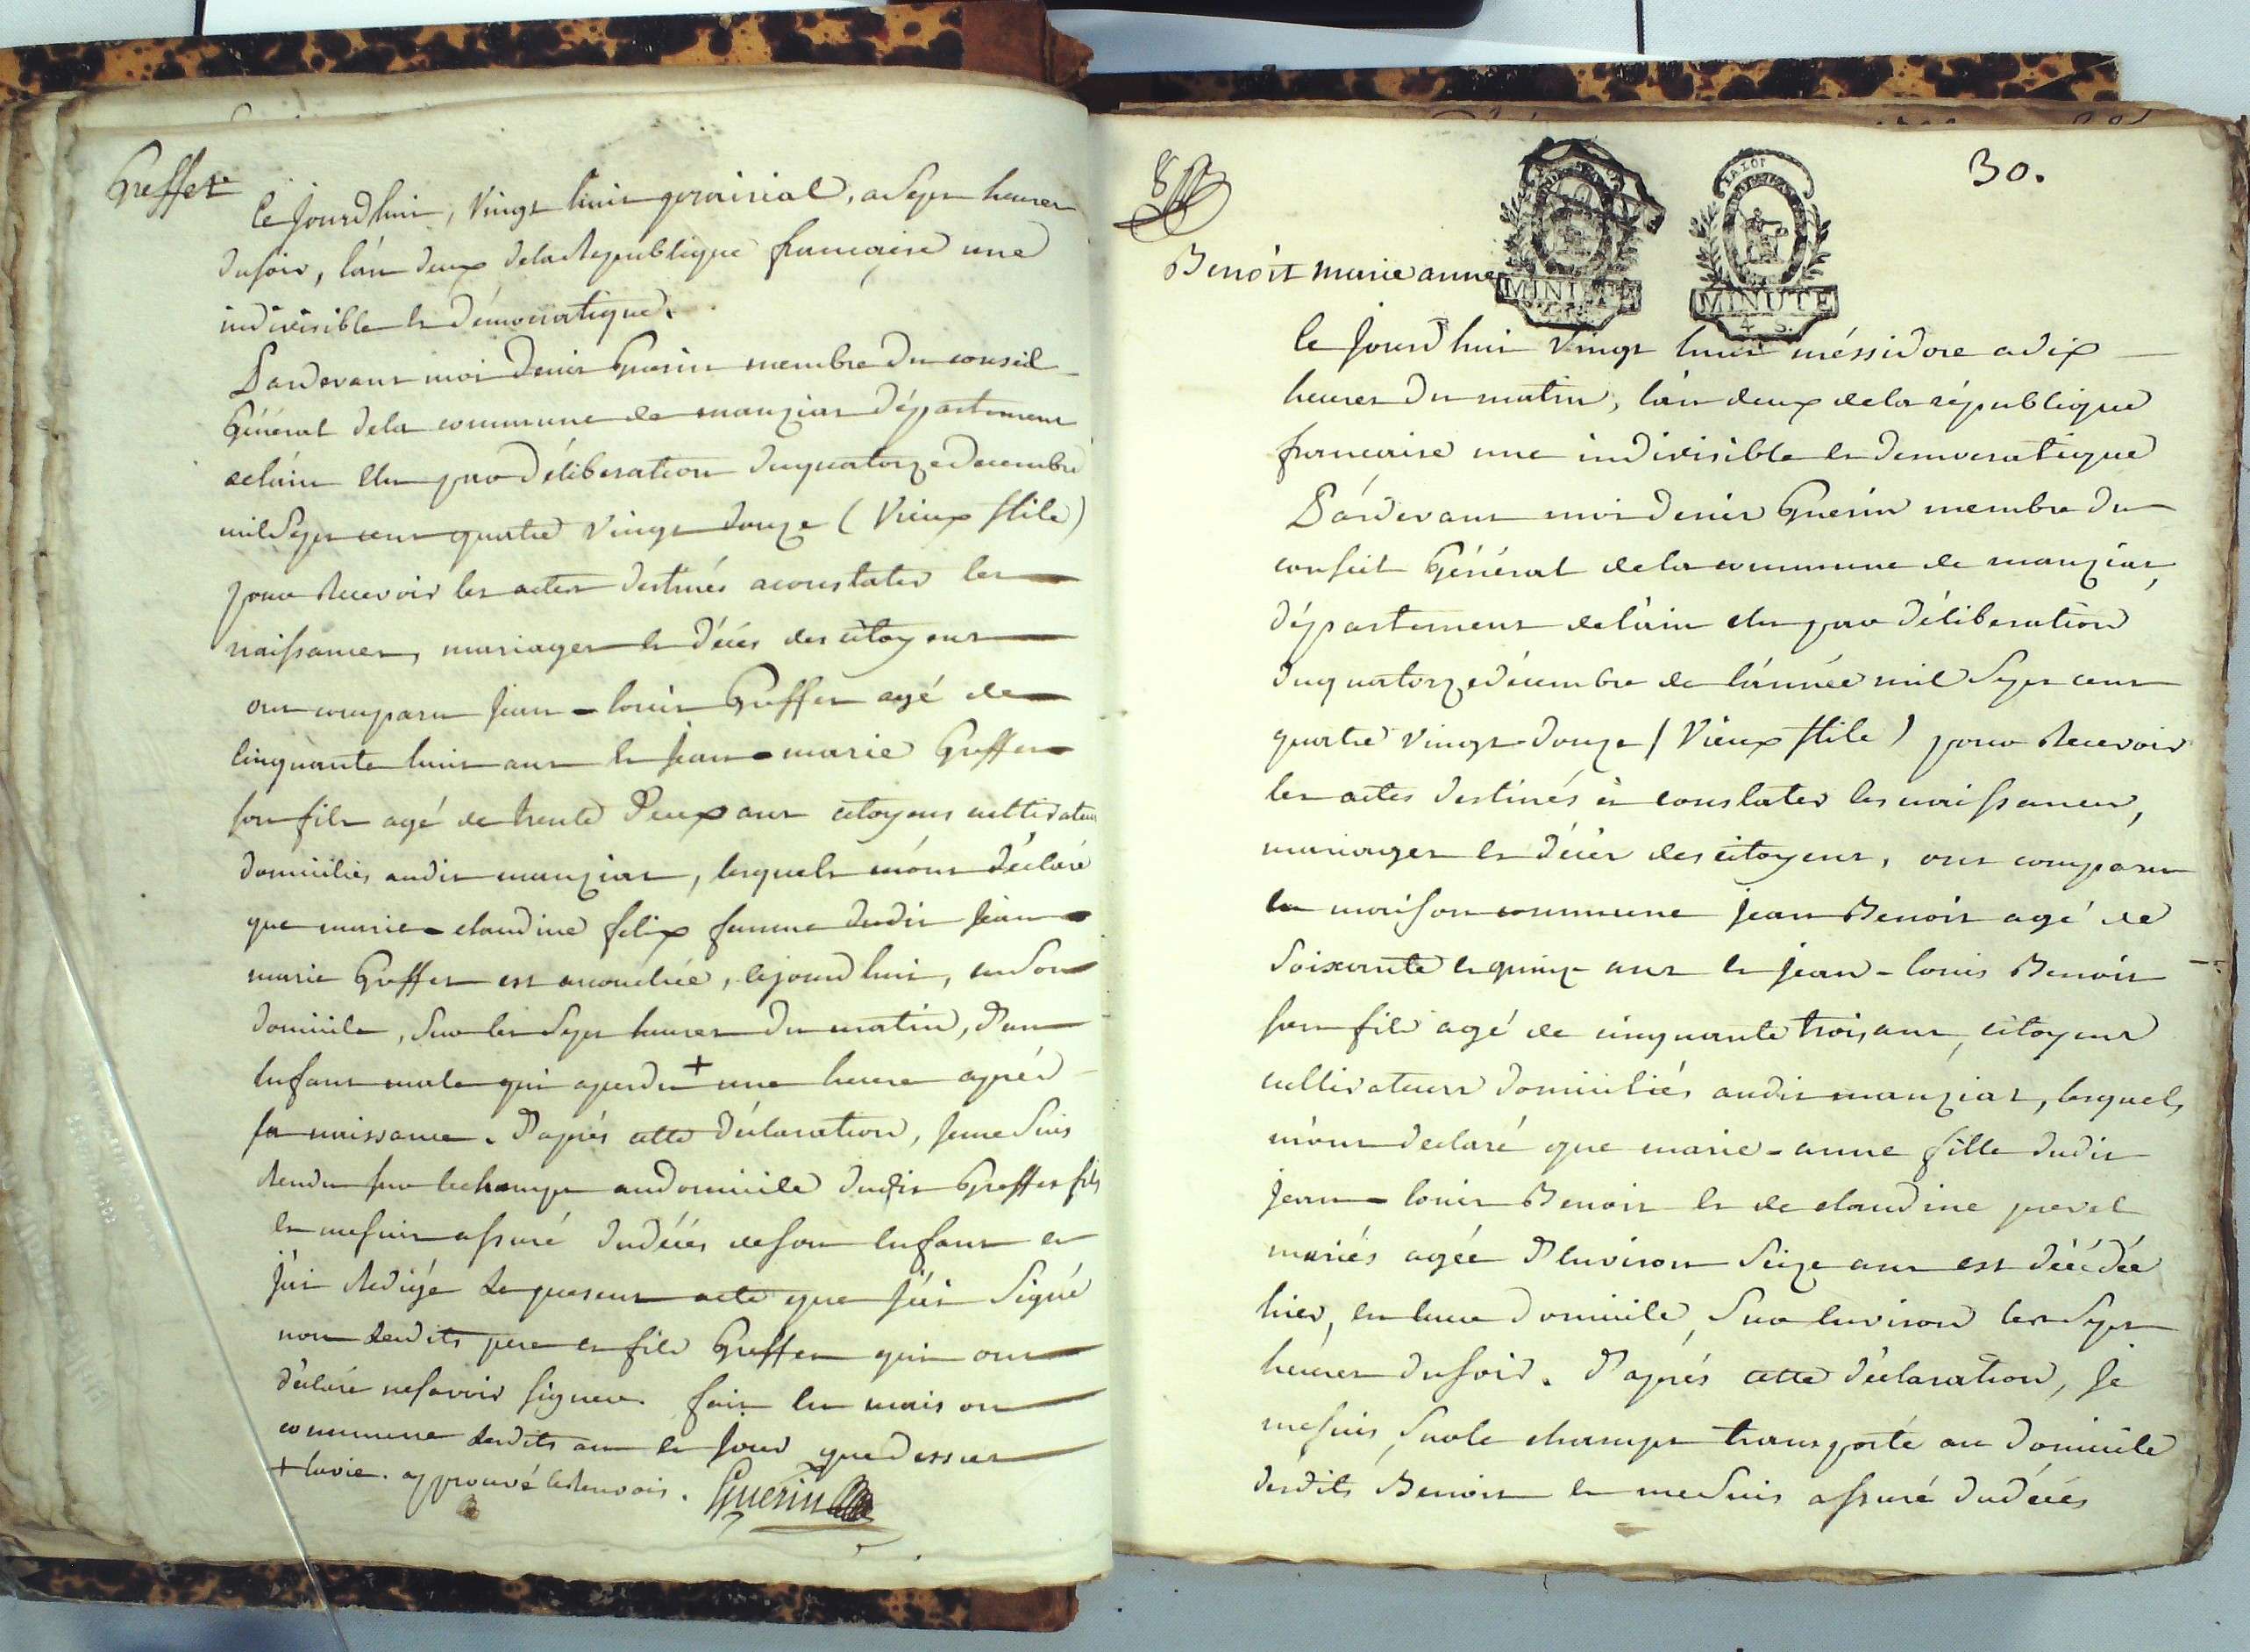 Greffet
Ce Jourd'hui, Vingt huit prairial, a Sept heures
du soir, l'an deux de la Republique francaise une
indivisible et démocratique.
Pardevant moi Denis Guerin membre du conseil
Général de la commune de manziat département
de l'ain élu par délibération du quatorze decembre
mil Sept cent quatre Vingt douze (Vieux Stile)
pour Recevoir les actes destinés a constater les
naissances, mariages et décés des citoyens
ont comparu jean-louis Greffet agé de
cinquante huit ans et jean-marie Greffet
son fils agé de trente Deux ans citoyens cultivateurs
domiciliés audit manziat, lesquels m'ont déclaré
que marie-claudine felix femme dudit jean-
marie Greffet est accouchée, cejourd'hui, en Son
domicile, Sur les Sept heures du matin, D'un
Enfant male qui a perdu + une heure aprés
sa naissance. D'aprés cette déclaration, je me Suis
Rendu sur le champ au domicile dudit Greffet fils
et me suis assuré du décés de son Enfant et
j'ai Redigé Le present acte que j'ai Signé
non Lesdits pere et fils Greffet qui ont
déclaré ne savoir signer. fait En maison
commune Lesdits an et jour que dessus
+ la vie. approuvé le Renvoi. Guerin
30.
MINUTE
LA LOI
MINUTE
4 S.
Benoit marie anne
Ce Jourd'hui Vingt huit méssidore a dix
heures du matin, l'an deux de la république
francaise une indivisible et democratique
Pardevant moi denis Guerin membre du
conseil Général de la commune de manziat,
département de l'ain élu par délibération
du quatorze décembre de l'année mil Sept cent
quatre Vingt-douze (Vieux Stile) pour Recevoir
les actes destinés à constater les naissances,
mariages et décés des citoyens, ont comparu
en maison commune jean Benoit agé de
Soixante et quinze ans et jean-louis Benoit
son fils agé de cinquante trois ans, citoyens
cultivateurs domiciliés audit manziat, lesquels
m'ont declaré que marie-anne fille dudit
jean-louis Benoit et de claudine
mariés agée D'Environ Seize ans est décédée
hier, en leur domicile, Sur Environ les Sept
heures du soir. D'aprés cette déclaration, je
me suis Sur le champ transporté au domicile
desdits Benoit et me Suis assuré du décés